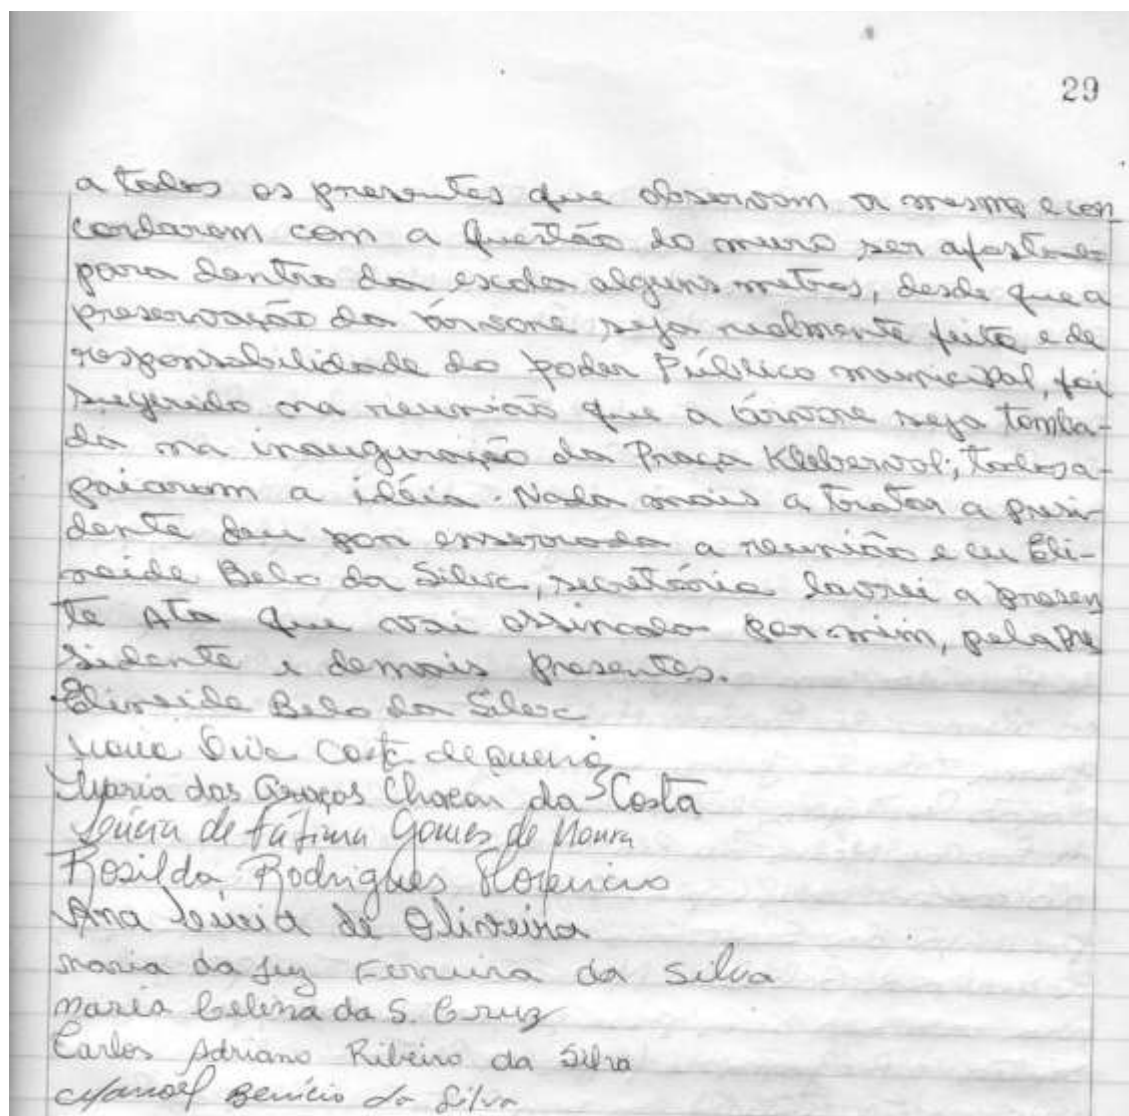 29
a todos os presentes que observam a mesma e con
cordaram com a questão do muro ser afastado
para dentro da escola alguns metros, desde que a
preservação da árvore seja realmente feita e de
responsabilidade do poder Público municipal, foi
sugerido na reunião que a árvore seja tomba-
da na inauguração da Praça Klebervol; todos a-
poiaram a idéia. Nada mais a tratar a presi-
dente deu por encerrada a reunião e eu Eli-
neide Belo da Silva, secretária lavrei a presen
te Ata que vai assinada por mim, pela pre
sidente e demais presentes.
Elineide Belo da Silva
Costa de
Maria das Graças Chacon da Costa
Lúcia de Fátima Gomes de Moura
Rosilda Rodrigues Florencio
Ana Lúcia de Oliveira
Maria da Luz Ferreira da Silva
Maria Celina da S. Cruz
Carlos Adriano Ribeiro da Silva
Manoel Benício da Silva